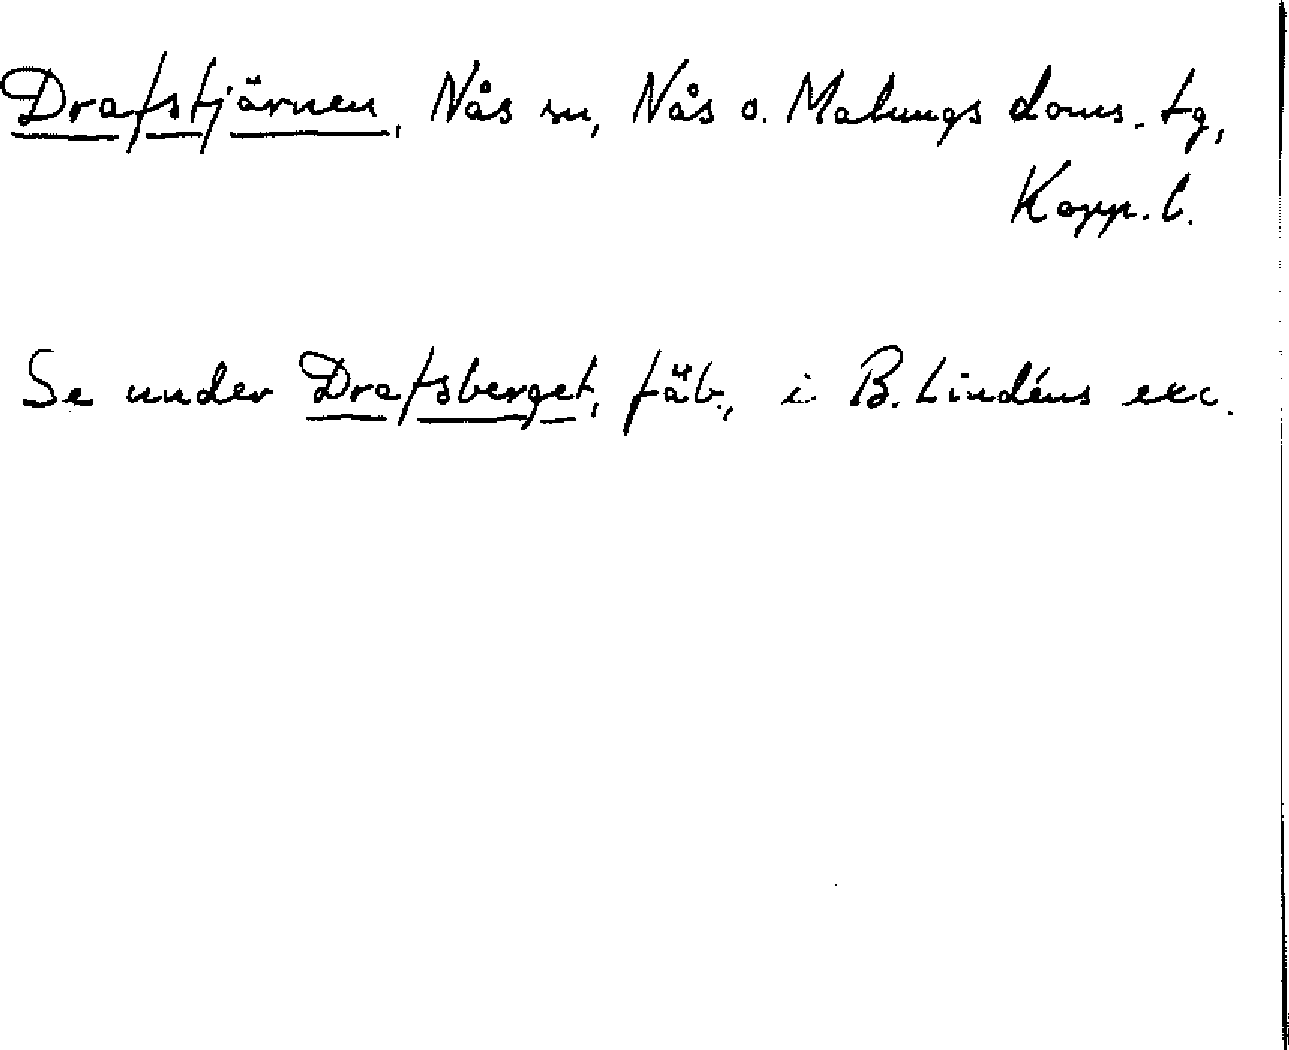 Drafstjärnen, Nås sn, Nås o. Malungs doms. tg,
Kopp. l.
Se under Drafsberget, fäb., i B. Lindéns exc.